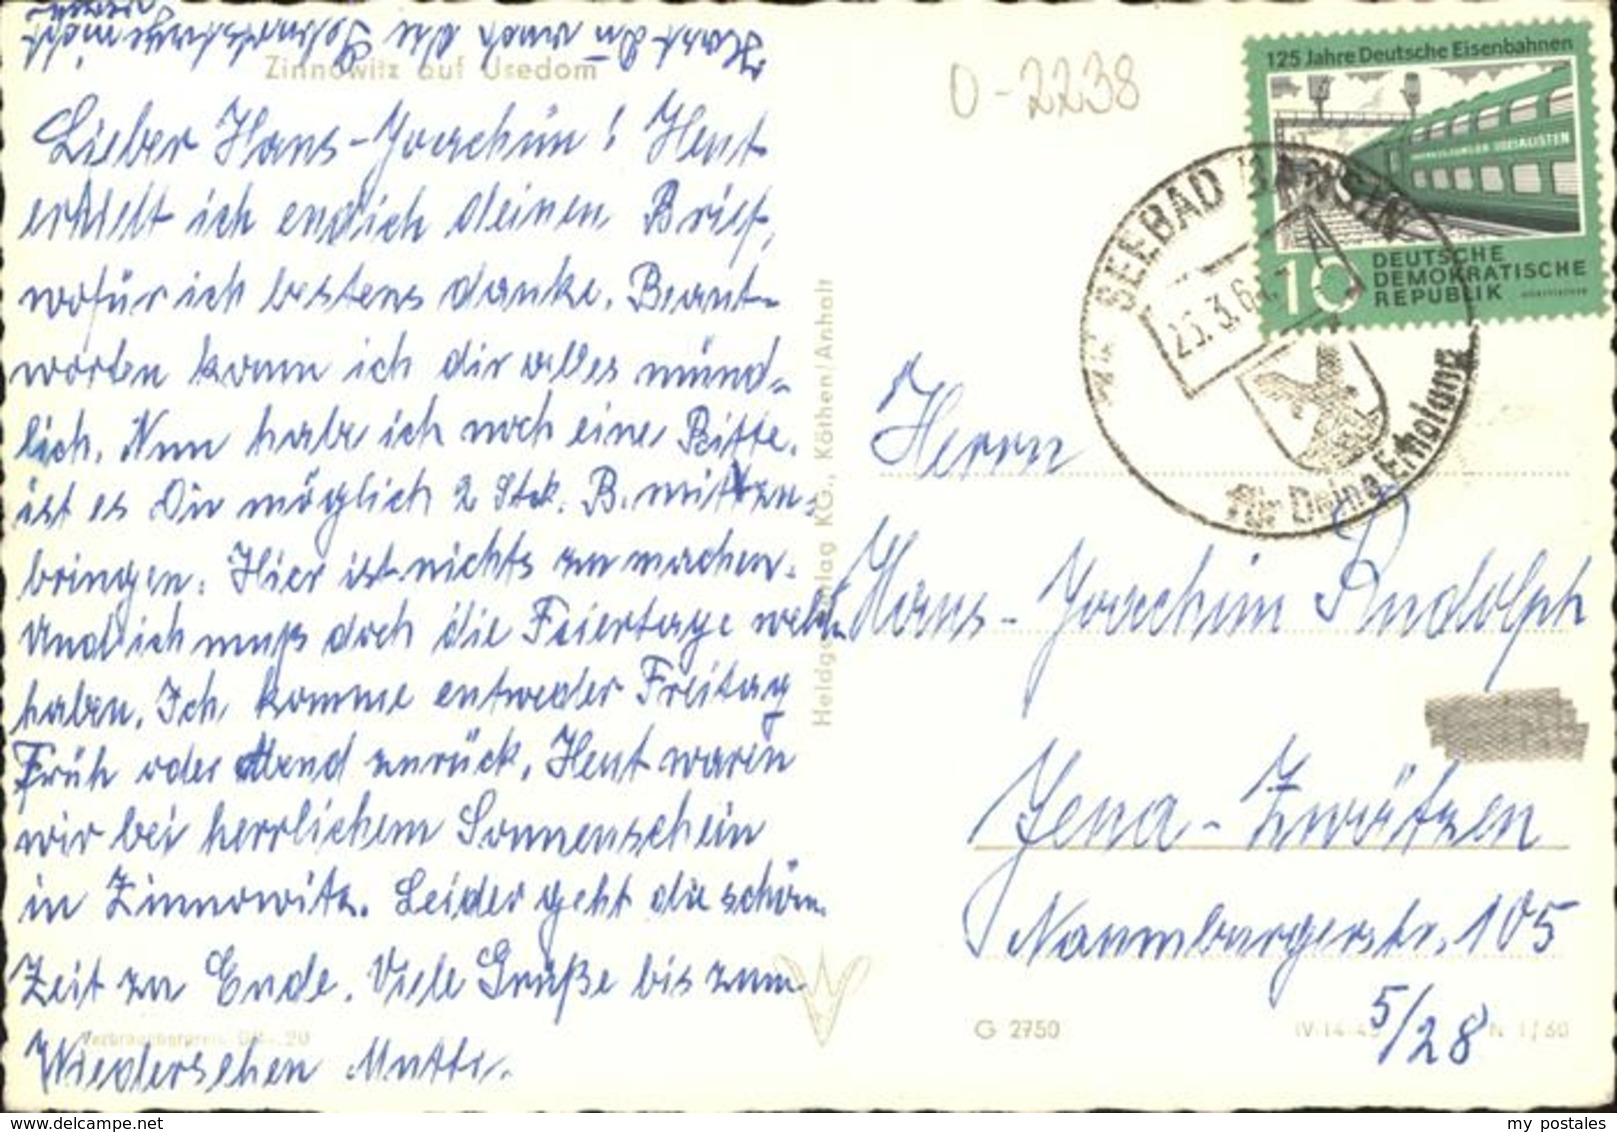 Hast Du nach die Johrestage nicht
Zinnowitz auf Usedom
Lieber Hans-Joachim! Heut
erhielt ich endlich deinen Brief,
wofür ich bestens danke. Beant-
worten kann ich dir alles münd-
lich. Nun habe ich noch eine Bitte.
ist es Dir möglich 2 Stck. B. mitzu-
bringen. Hier ist nichts zu machen.
Und ich muß doch die Feiertage welch
haben. Ich komme entweder Freitag
Früh oder Abend zurück. Heut waren
wir bei herrlichem Sonnenschein
in Zinnowitz. Leider geht die schön.
Zeit zu Ende. Viele Grüße bis zum
Wiedersehen Mutti.
Verbraucherpreis DM -.20
Heldge-Verlag KG., Köthen/Anhalt
0-2238
125 Jahre Deutsche Eisenbahnen
10
DEUTSCHE
DEMOKRATISCHE
REPUBLIK
SEEBAD BANSIN
25.3.61.-
für Deine Erholung
Herrn
Hans-Joachim Rudolph
Jena-Zwätzen
Naumburgerstr. 105
5/28
G 2750
N 1/60
my postales